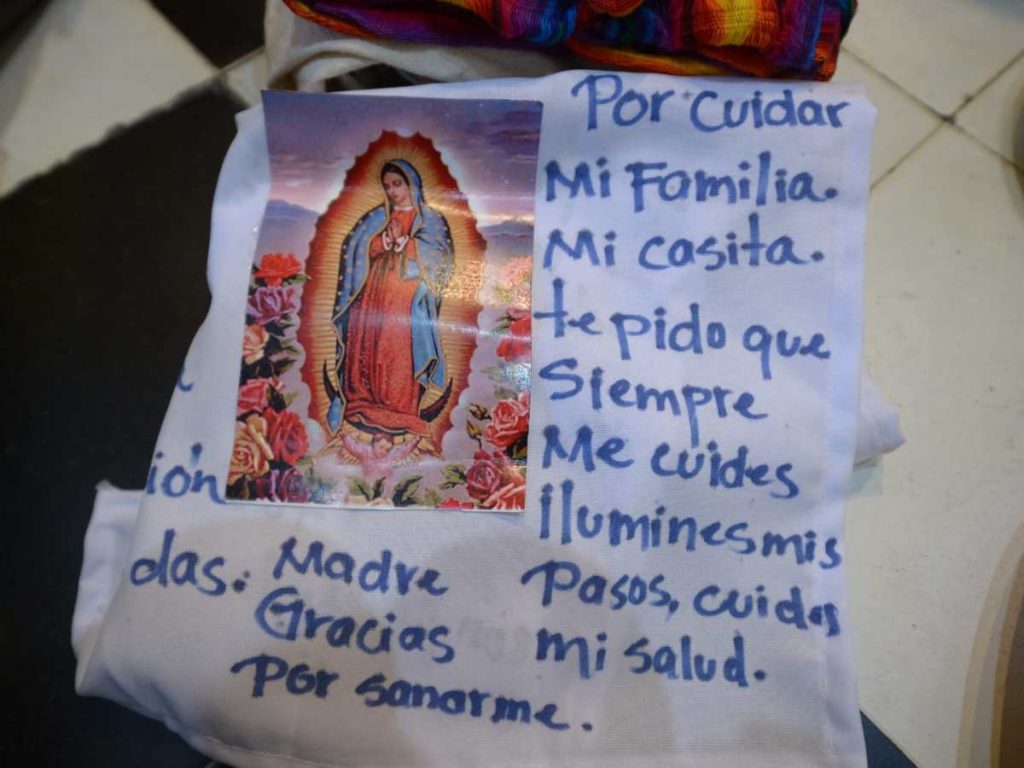 Por cuidar
Mi Familia.
Mi casita.
te pido que
Siempre
Me cuides
ilumines mis
Pasos, cuides
mi salud.
ión
das.
Madre
Gracias
Por sanarme.